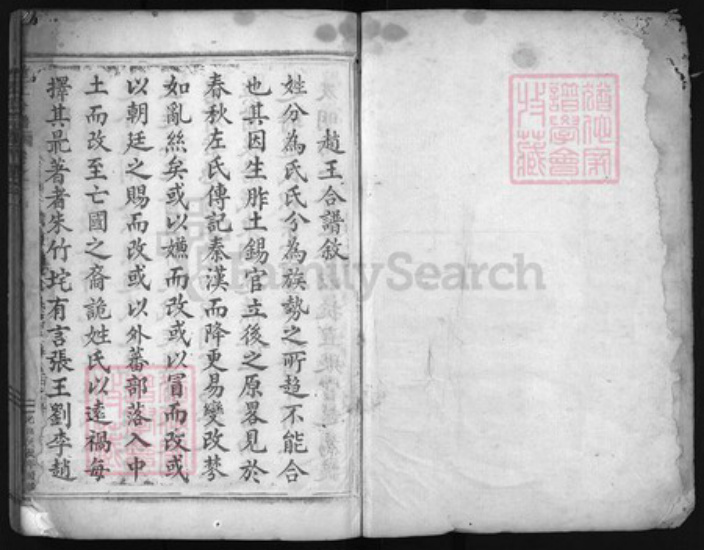 趙王合譜敘
姓分為氏氏分為族勢之所趨不能合
也其因生胙土錫官立後之原畧見於
春秋左氏傳記秦漢而降更易變改棼
如亂絲矣或以嫌而改或以冒而改或
以朝廷之賜而改或以外蕃部落入中
土而改至亡國之裔詭姓氏以遠禍每
擇其最著者朱竹垞有言張王劉李趙
FamilySearch